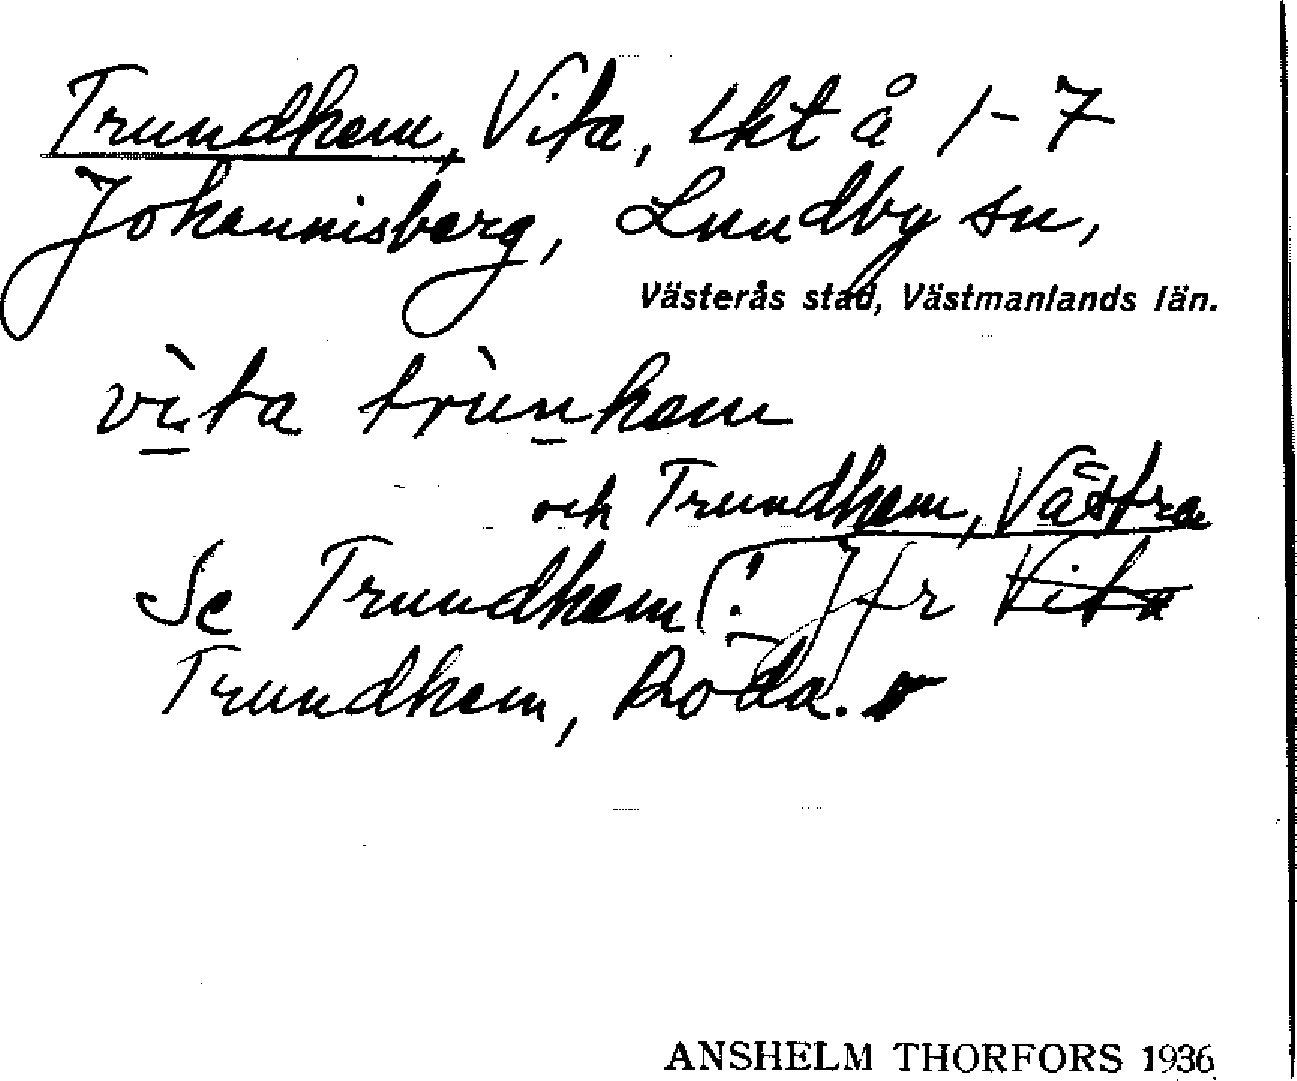 Trundhem, Vita, lht å 1-7
Johannisberg, Lundby sn,
Västerås stad, Västmanlands län.
vìta trùnhem
och Trundhem, Västra
Se Trundhem (! Jfr Vita
Trundhem, Röda.
ANSHELM THORFORS 1936